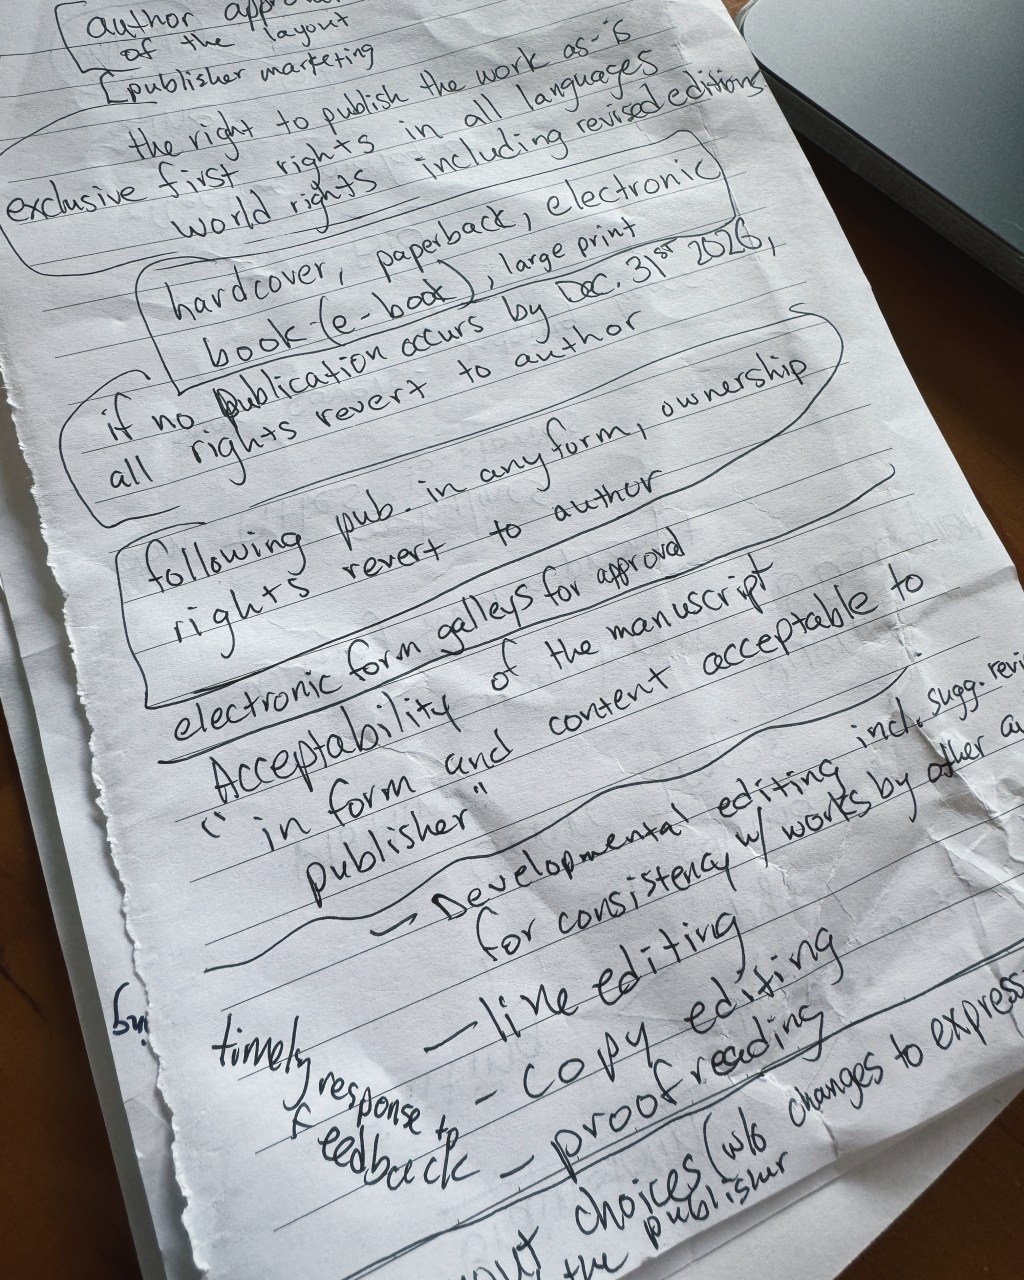 author
of the layout
publisher marketing
the right to publish the work as-is
exclusive first rights in all languages
world rights including revised editions
hardcover, paperback, electronic
book (e-book), large print
if no publication occurs by Dec. 31st 2026,
all rights revert to author
following pub. in any form, ownership
rights revert to author
electronic form galleys for approval
Acceptability of the manuscript
"in form and content acceptable to
publisher"
Developmental editing incl. sugg.
for consistency w/ works by other
- line editing
- copy editing
- proofreading
timely
response to
feedback
choices (w/o changes to
the publisher